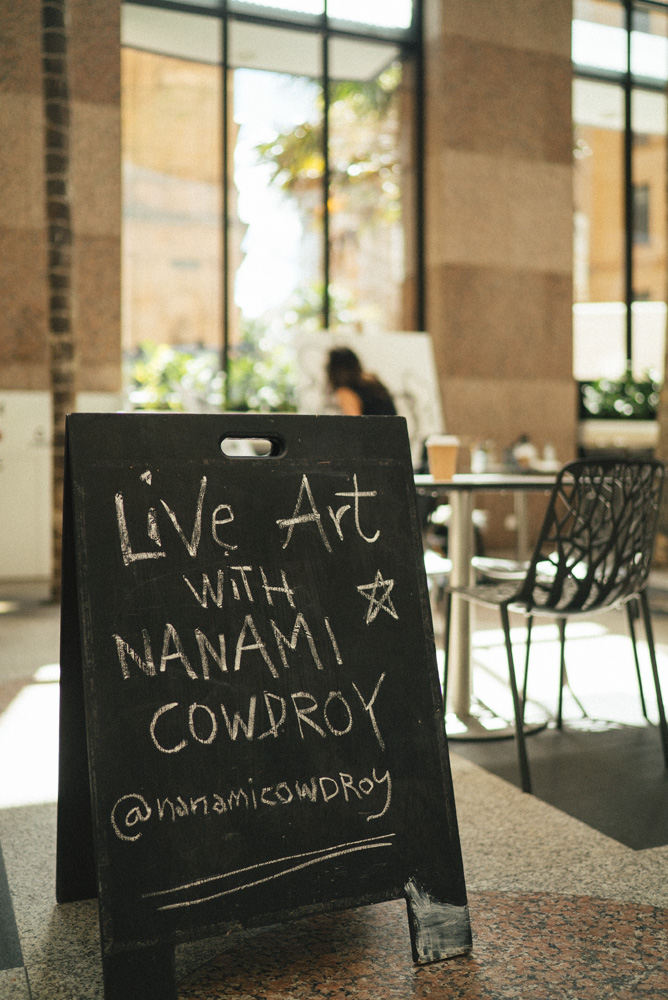 Live Art
WITH
NANAMI
COWDROY
@nanamicowDRoy